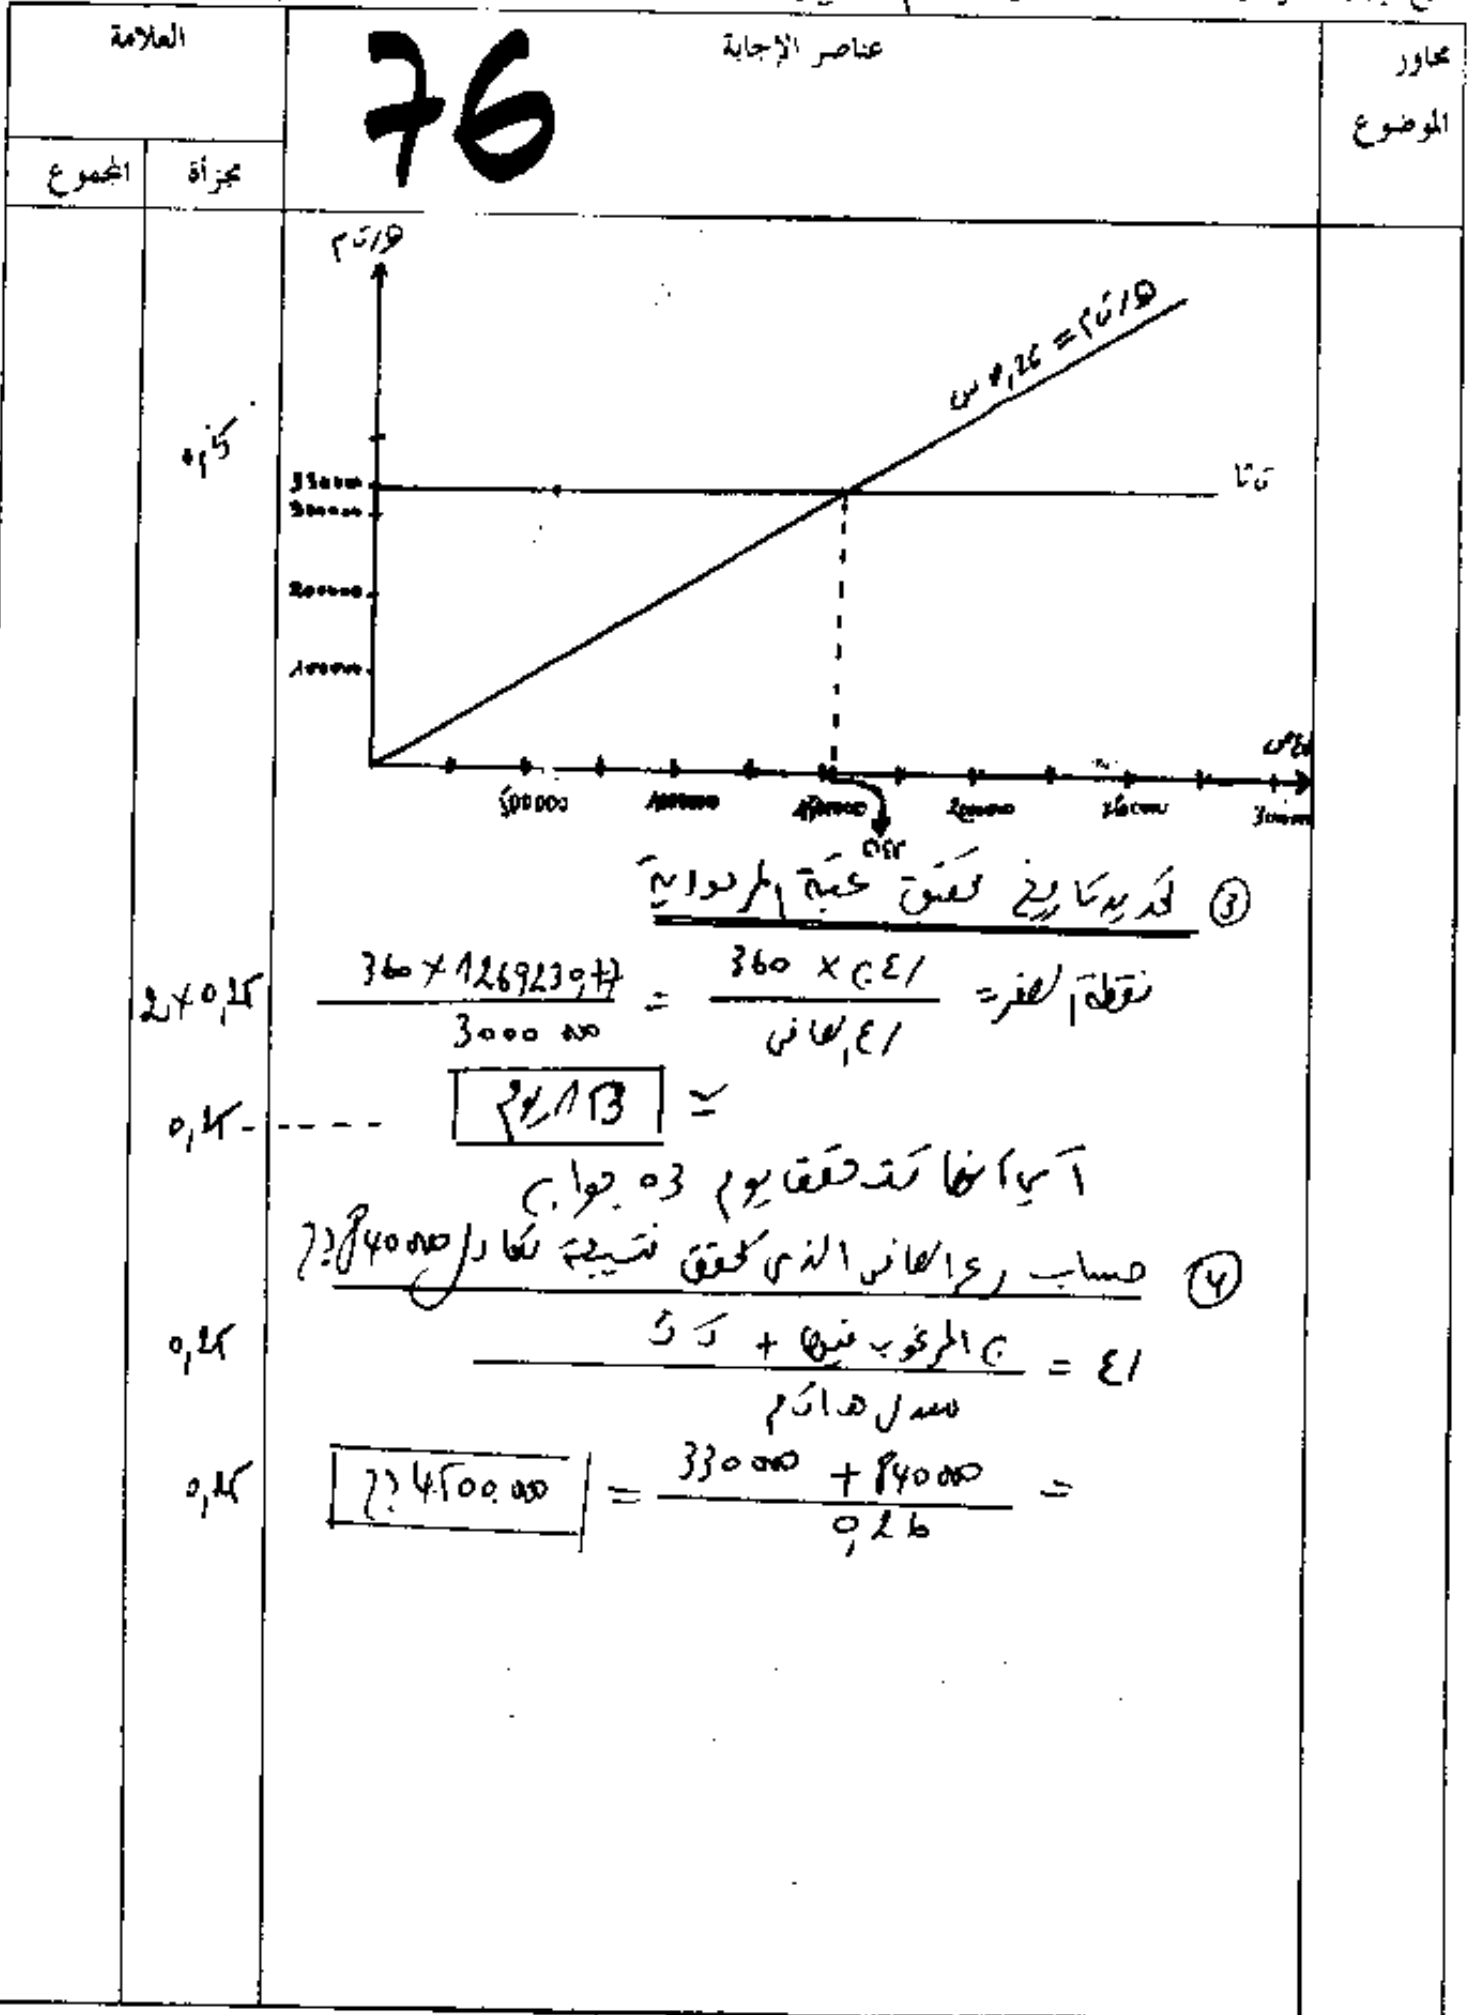 محاور الموضوع
عناصر الإجابة
العلامة
مجزأة
المجموع
76
ه/تم
ه/تم = 0,26 س
0,5
تثا
330000
300000
200000
100000
500000
1000000
1500000
2000000
2500000
3000000
③ تحديد تاريخ تحقق عتبة المردودية
نقطة الصفر = رع ن × 360 / رع الصافي = 360 × 1269230,77 / 3000 000
2 × 0,25
≃ 153 يوم
0,25
أي أنها تتحقق يوم 03 جوان
④ حساب رع الصافي الذي يحقق نتيجة تعادل 840000 دج
رع = ن المرغوب فيها + ت ث / معدل ه/تم
0,25
= 840 000 + 330 000 / 0,26 = 4500.000 دج
0,25